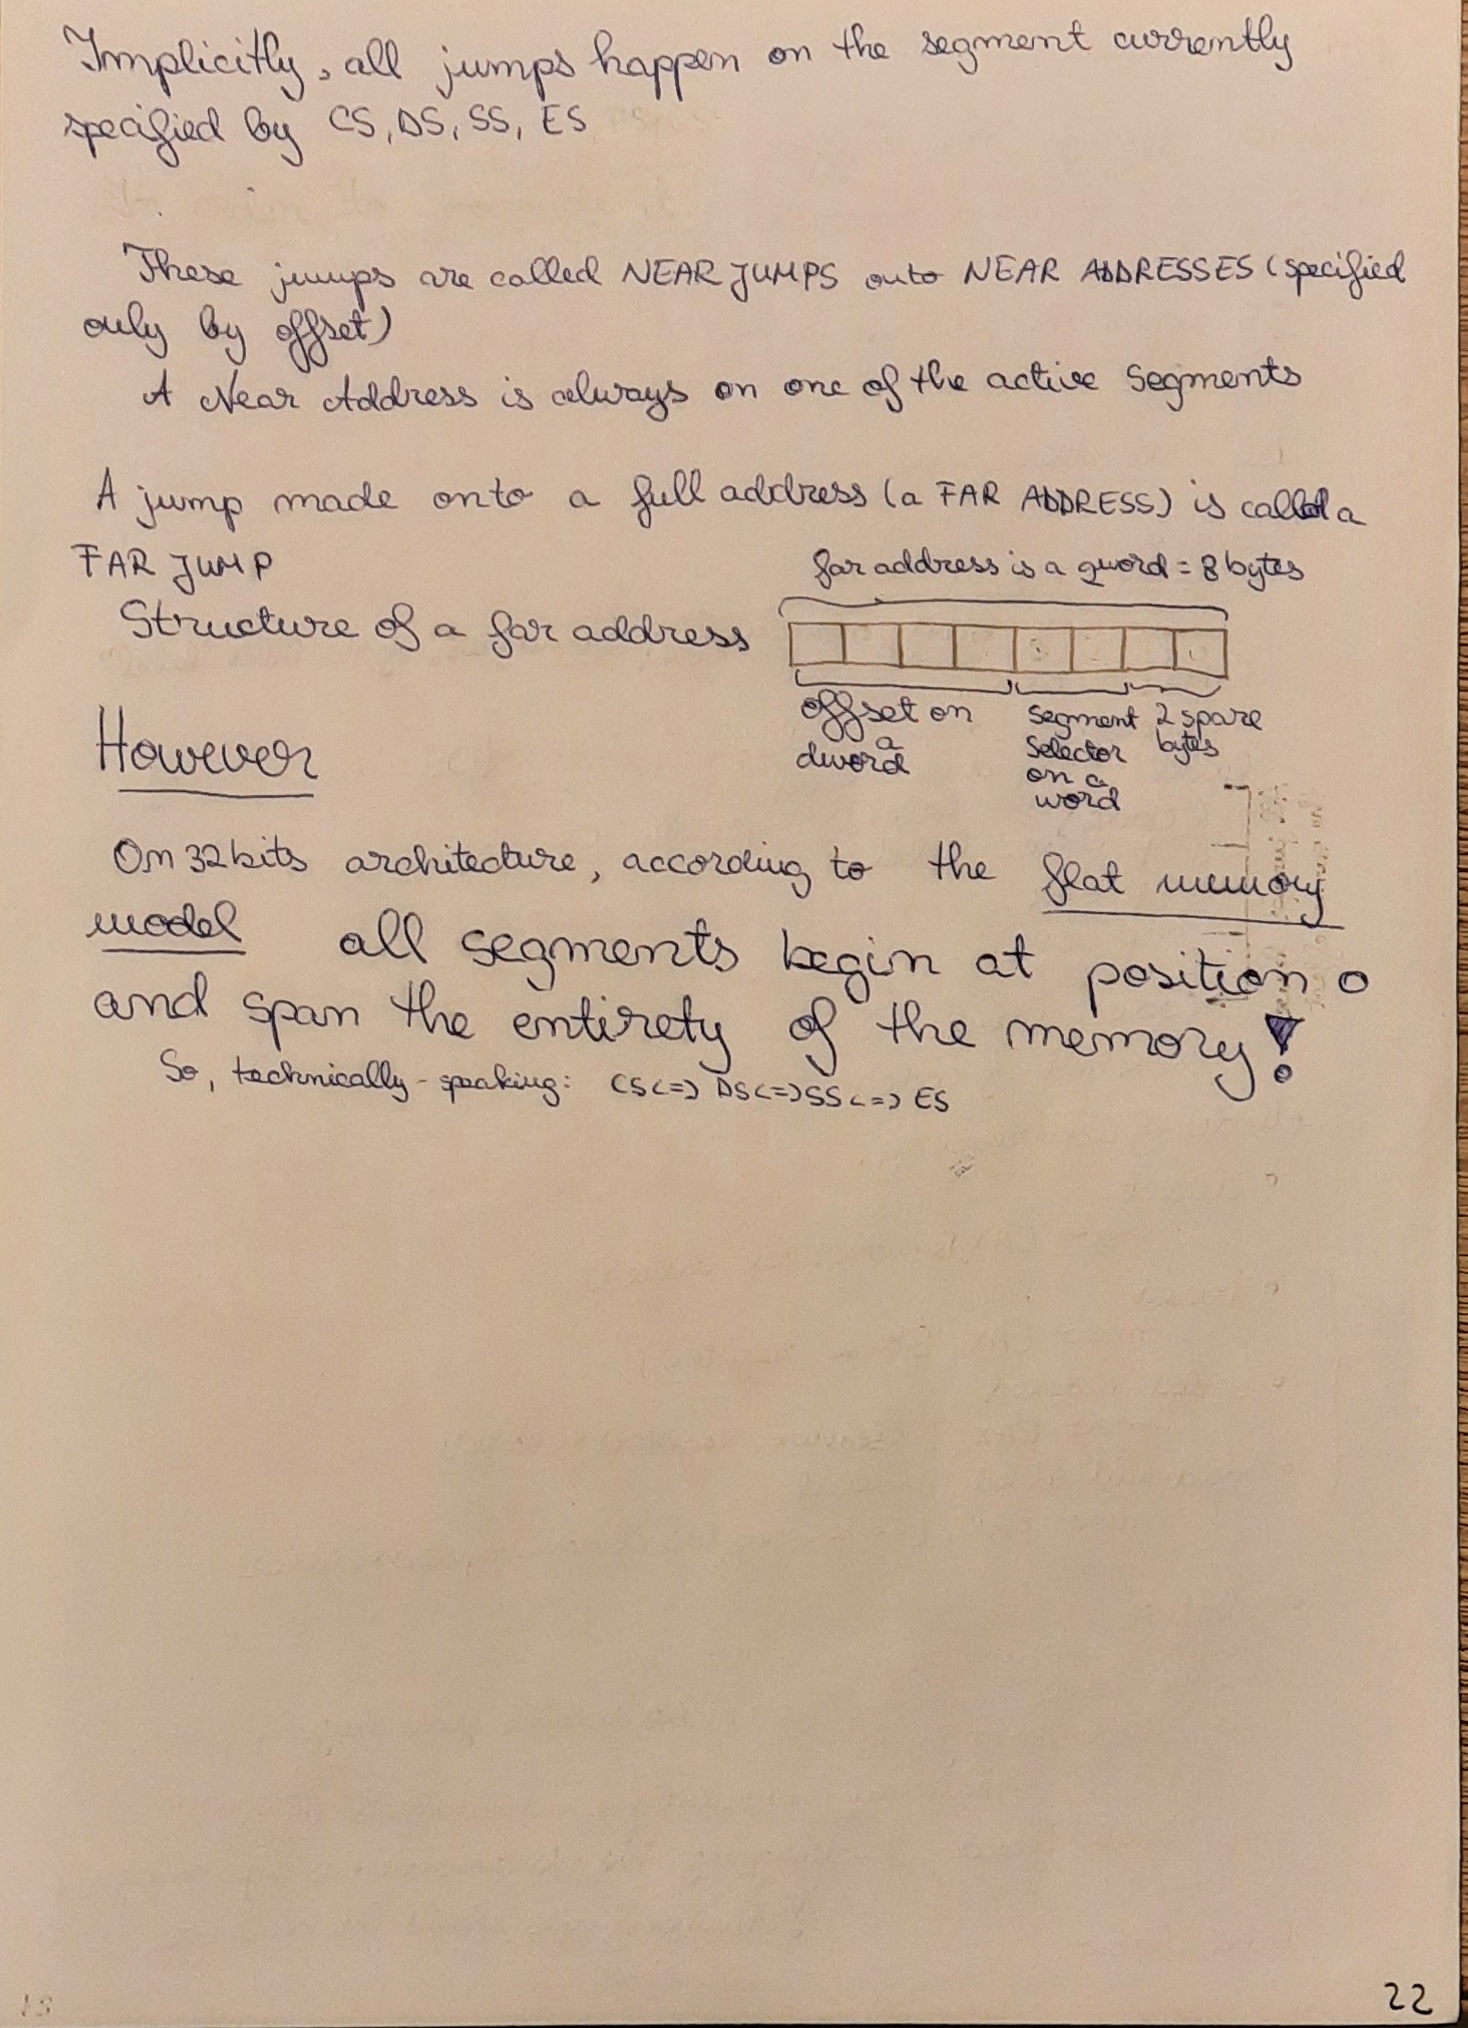 Implicitly, all jumps happen on the segment currently
specified by CS, DS, SS, ES
These jumps are called NEAR JUMPS onto NEAR ADDRESSES (specified
only by offset)
A Near Address is always on one of the active segments
A jump made onto a full address (a FAR ADDRESS) is called a
FAR JUMP
far address is a qword = 8 bytes
Structure of a far address
offset on
a
dword
segment
selector
on a
word
2 spare
bytes
However
On 32 bits architecture, according to the flat memory
model all segments begin at position 0
and span the entirety of the memory!
So, technically-speaking: CS<=> DS<=>SS<=> ES
22